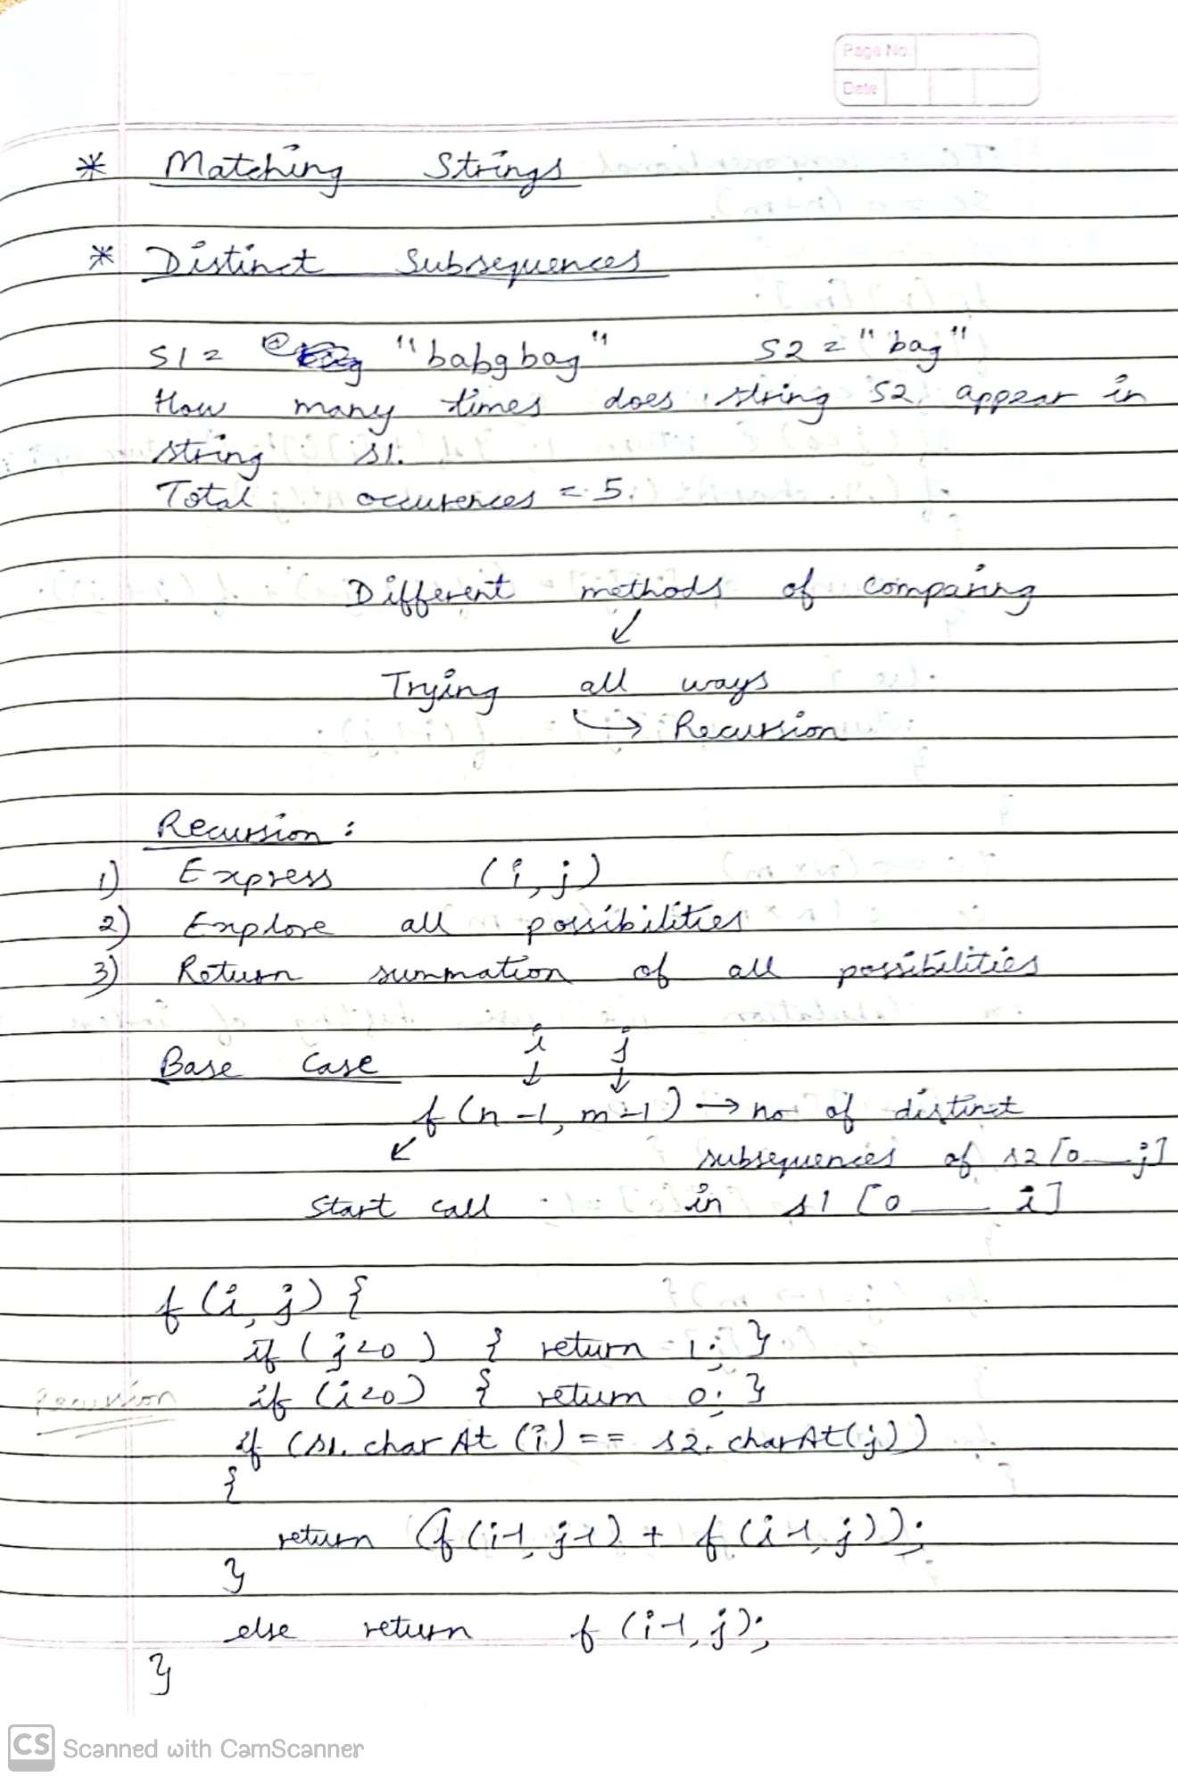 Page No
Date
* Matching Strings
* Distinct Subsequences
S1 = "babgbag" S2 = "bag"
How many times does string S2 appear in
string s1.
Total occurences = 5.
Different methods of comparing
↙
Trying all ways
↳ Recursion
Recursion :
1) Express (i, j)
2) Explore all possibilities
3) Return summation of all possibilities
i j
Base Case ↓ ↓
f(n-1, m-1) → no of distinct
↙ subsequences of s2 [0___j]
Start call in s1 [0___i]
f(i, j) {
if (j<0) { return 1; }
Recursion if (i<0) { return 0; }
if (s1.charAt(i) == s2.charAt(j))
{
return (f(i-1, j-1) + f(i-1, j));
}
else return f(i-1, j);
}
CS Scanned with CamScanner